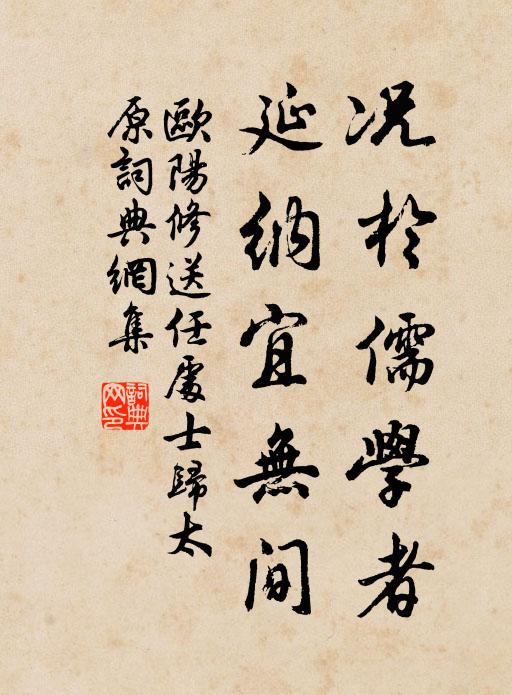 况於儒學者
延納宜無間
歐陽修送任處士歸太
原詞典網集
詞典
网印